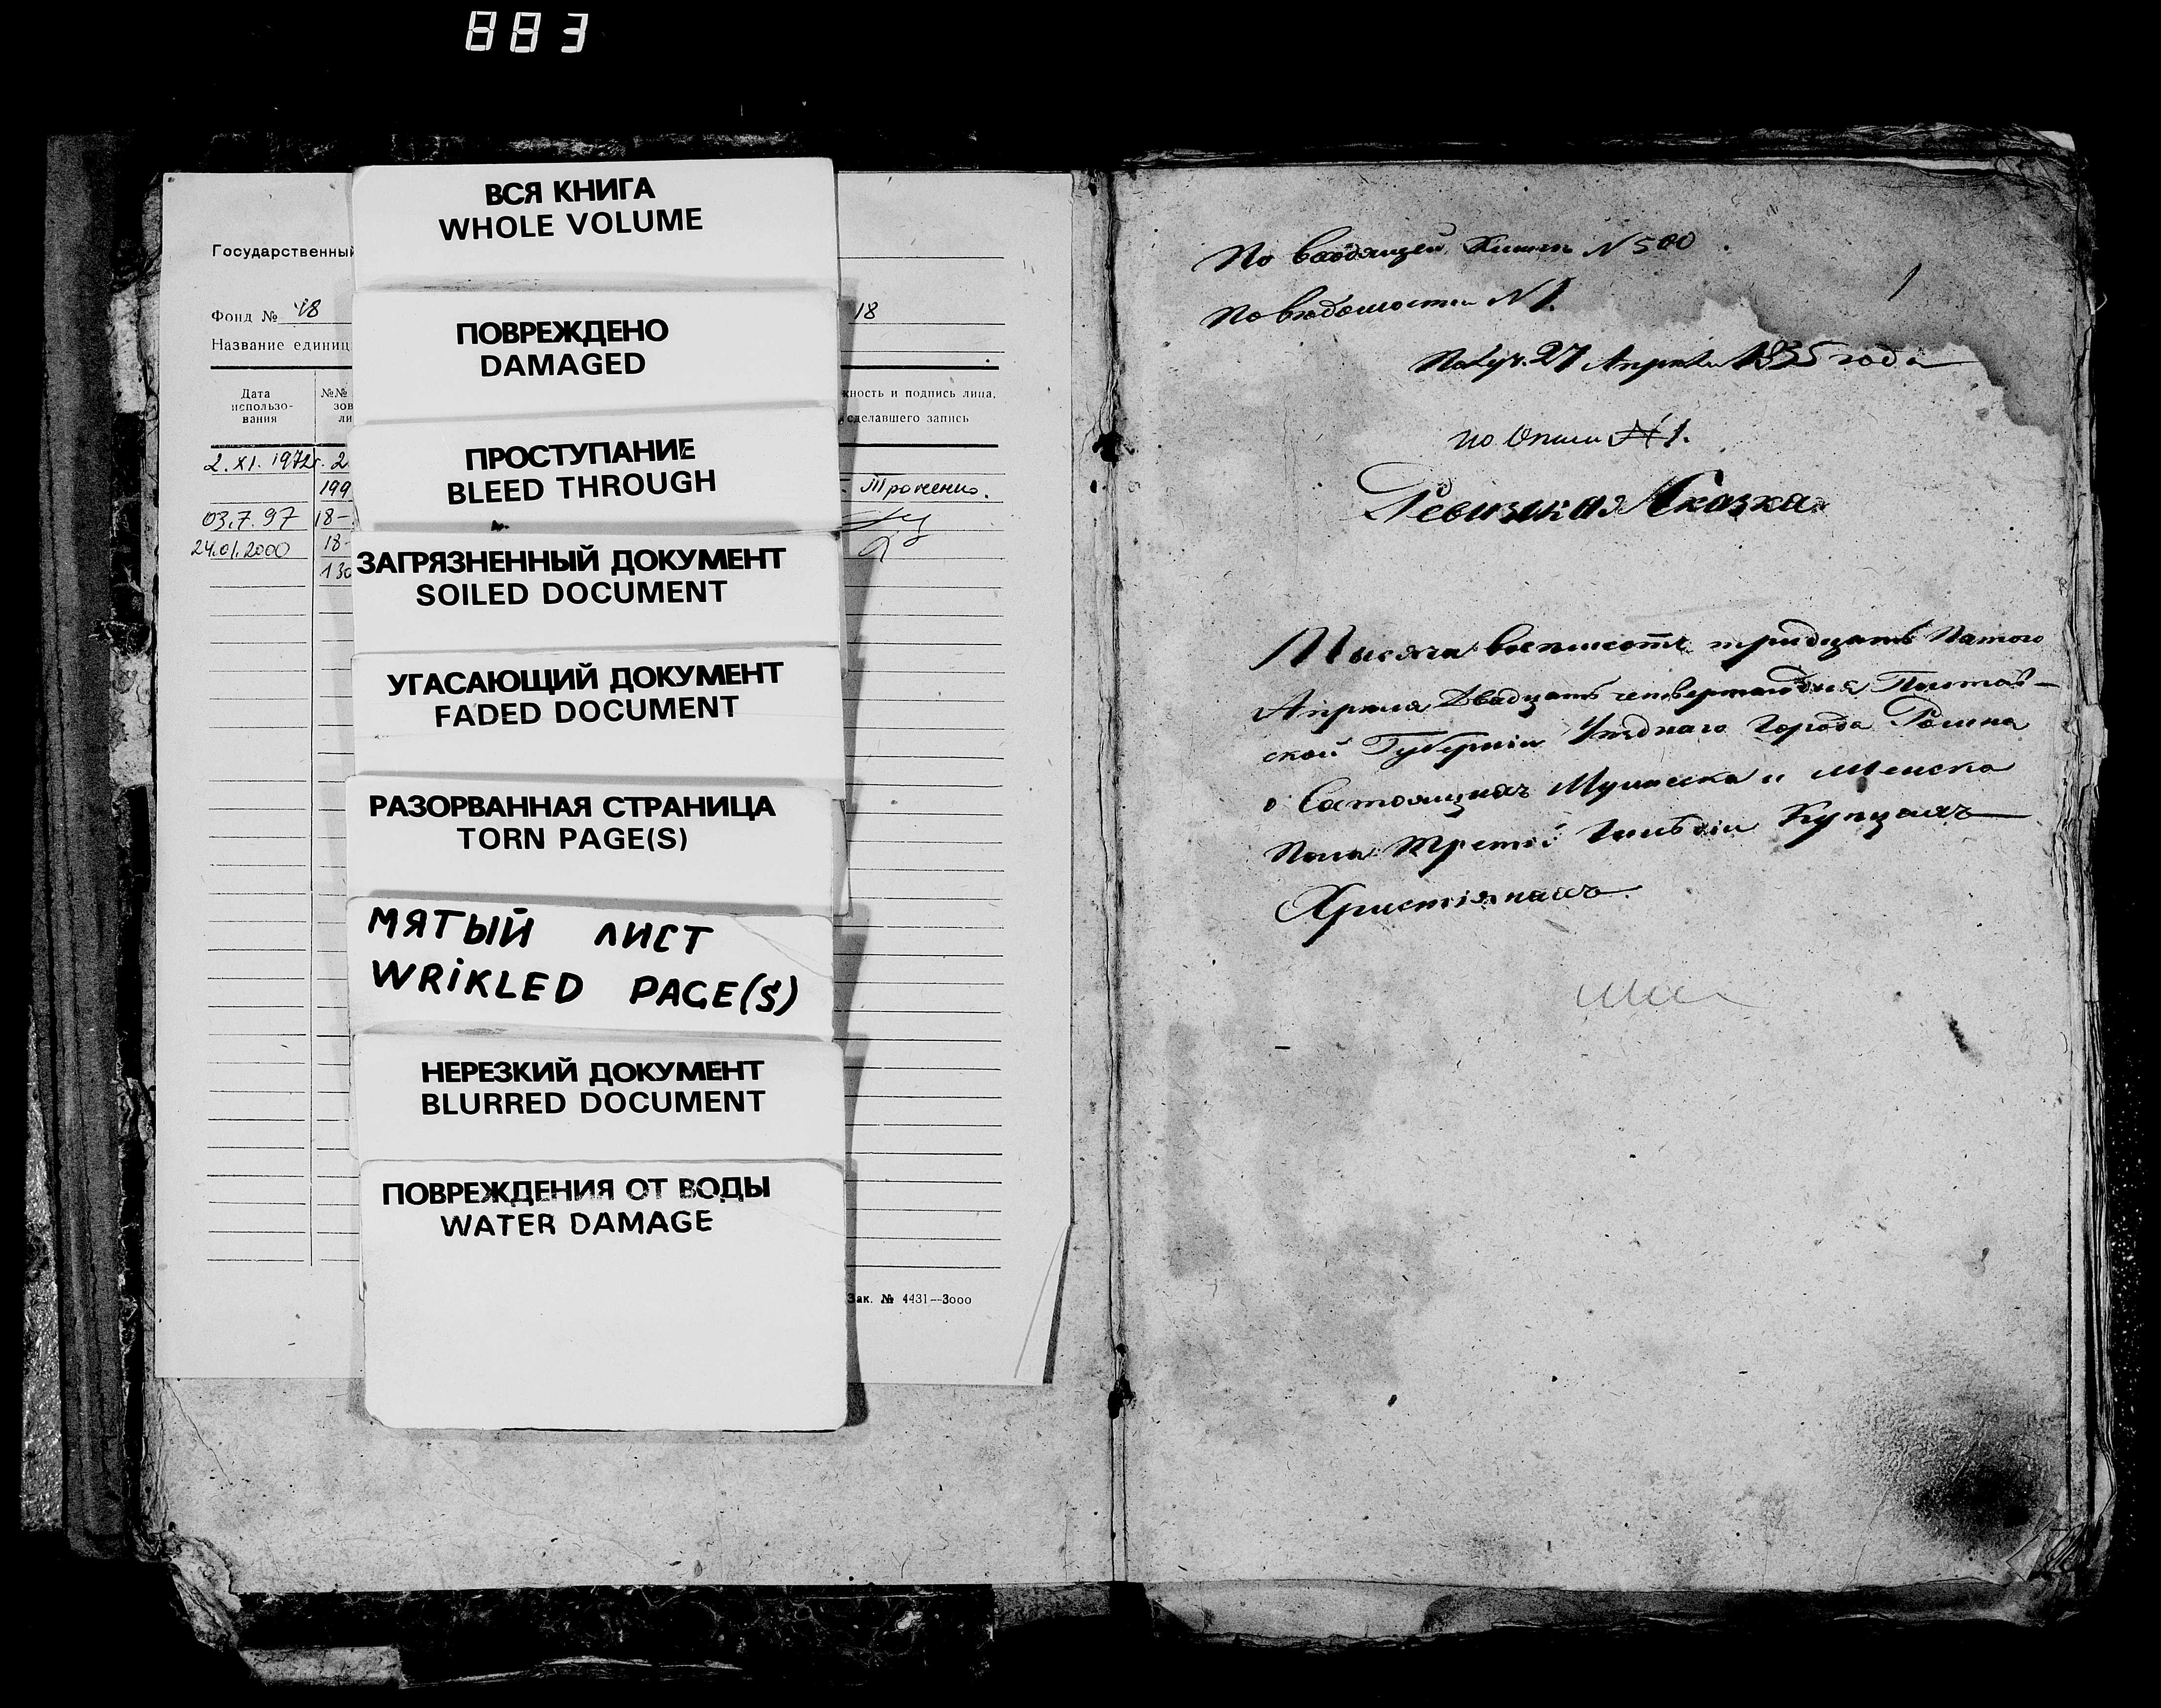 883
ВСЯ КНИГА
WHOLE VOLUME
Государственный
Фонд № 48
18
Название единиц
ПОВРЕЖДЕНО
DAMAGED
Дата
использо-
вания
№№
зов
ли
жность и подпись лица,
сделавшего запись
ПРОСТУПАНИЕ
BLEED THROUGH
2.XI.1972г. 2
199
03.7.97 18-
24.01.2000 18-
130
ЗАГРЯЗНЕННЫЙ ДОКУМЕНТ
SOILED DOCUMENT
УГАСАЮЩИЙ ДОКУМЕНТ
FADED DOCUMENT
РАЗОРВАННАЯ СТРАНИЦА
TORN PAGE(S)
МЯТЫЙ ЛИСТ
WRiKLED PAGE(S)
НЕРЕЗКИЙ ДОКУМЕНТ
BLURRED DOCUMENT
ПОВРЕЖДЕНИЯ ОТ ВОДЫ
WATER DAMAGE
Зак. № 4431—3000
По входящей Книги N 500
1
По ведомости N 1.
Получ. 27 Апреля 1835 года
по Описи № 1.
Ревизкая Сказка
Тысяча восемсотъ тридцать Пятого
Апреля Двадцать четвертаго дня Полтав-
ской Губернiи Уезднаго Города Ромна
о Состоящихъ Мужеска и Женска
Пола Третей Гильдiи Купцахъ
Христiянахъ.